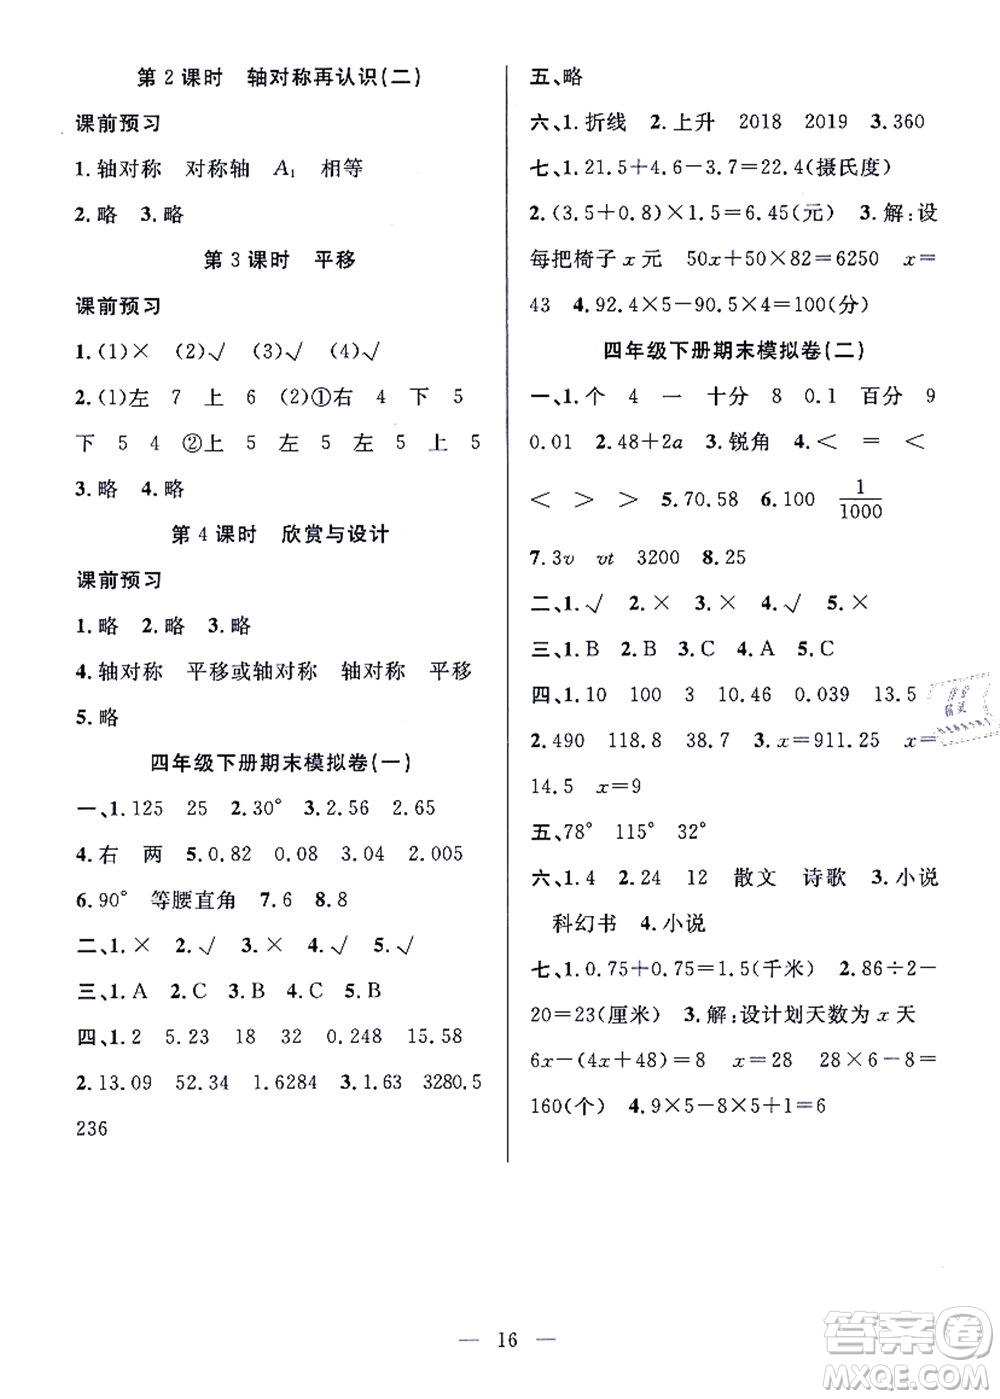 第2课时　轴对称再认识(二)
课前预习
1.轴对称　对称轴　A₁　相等
2.略　3.略
第3课时　平移
课前预习
1.(1)×　(2)√　(3)√　(4)√
2.(1)左　7　上　6　(2)①右　4　下　5
下　5　4　②上　5　左　5　左　5　上　5
3.略　4.略
第4课时　欣赏与设计
课前预习
1.略　2.略　3.略
4.轴对称　平移或轴对称　轴对称　平移
5.略
四年级下册期末模拟卷(一)
一、1.125　25　2.30°　3.2.56　2.65
4.右　两　5.0.82　0.08　3.4　2.005
6.90°　等腰直角　7.6　8.8
二、1.×　2.√　3.×　4.√　5.√
三、1.A　2.C　3.B　4.C　5.B
四、1.2　5.23　18　32　0.248　15.58
2.13.09　52.34　1.6284　3.1.63　3280.5
236
五、略
六、1.折线　2.上升　2018　2019　3.360
七、1.21.5+4.6-3.7=22.4(摄氏度)
2.(3.5+0.8)×1.5=6.45(元)　3.解:设
每把椅子x元　50x+50×82=6250　x=
43　4.92.4×5-90.5×4=100(分)
四年级下册期末模拟卷(二)
一、1.个　4　一　十分　8　0.1　百分　9
0.01　2.48+2a　3.锐角　4.<　=　<
<　>　>　5.70.58　6.100　1/1000
7.3v　vt　3200　8.25
二、1.√　2.×　3.×　4.√　5.×
三、1.B　2.B　3.C　4.A　5.C
四、1.10　100　3　10.46　0.039　13.5
2.490　118.8　38.7　3.x=911.25　x=
14.5　x=9
五、78°　115°　32°
六、1.4　2.24　12　散文　诗歌　3.小说
科幻书　4.小说
七、1.0.75+0.75=1.5(千米)　2.86÷2-
20=23(厘米)　3.解:设计划天数为x天
6x-(4x+48)=8　x=28　28×6-8=
160(个)　4.9×5-8×5+1=6
— 16 —
作业
精灵
答案卷
MXQE.COM